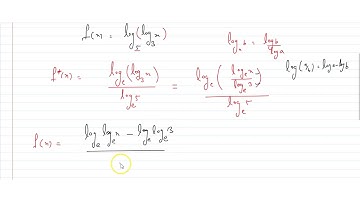 f(x) = log₅(log₃x)
logₐb = log b / log a
f*(x) = logₑ(log₃x) / logₑ5 = logₑ(logₑx / logₑ3) / logₑ5
log(a/b) = log a - log b
f(x) = logₑ logₑx - logₑ logₑ3